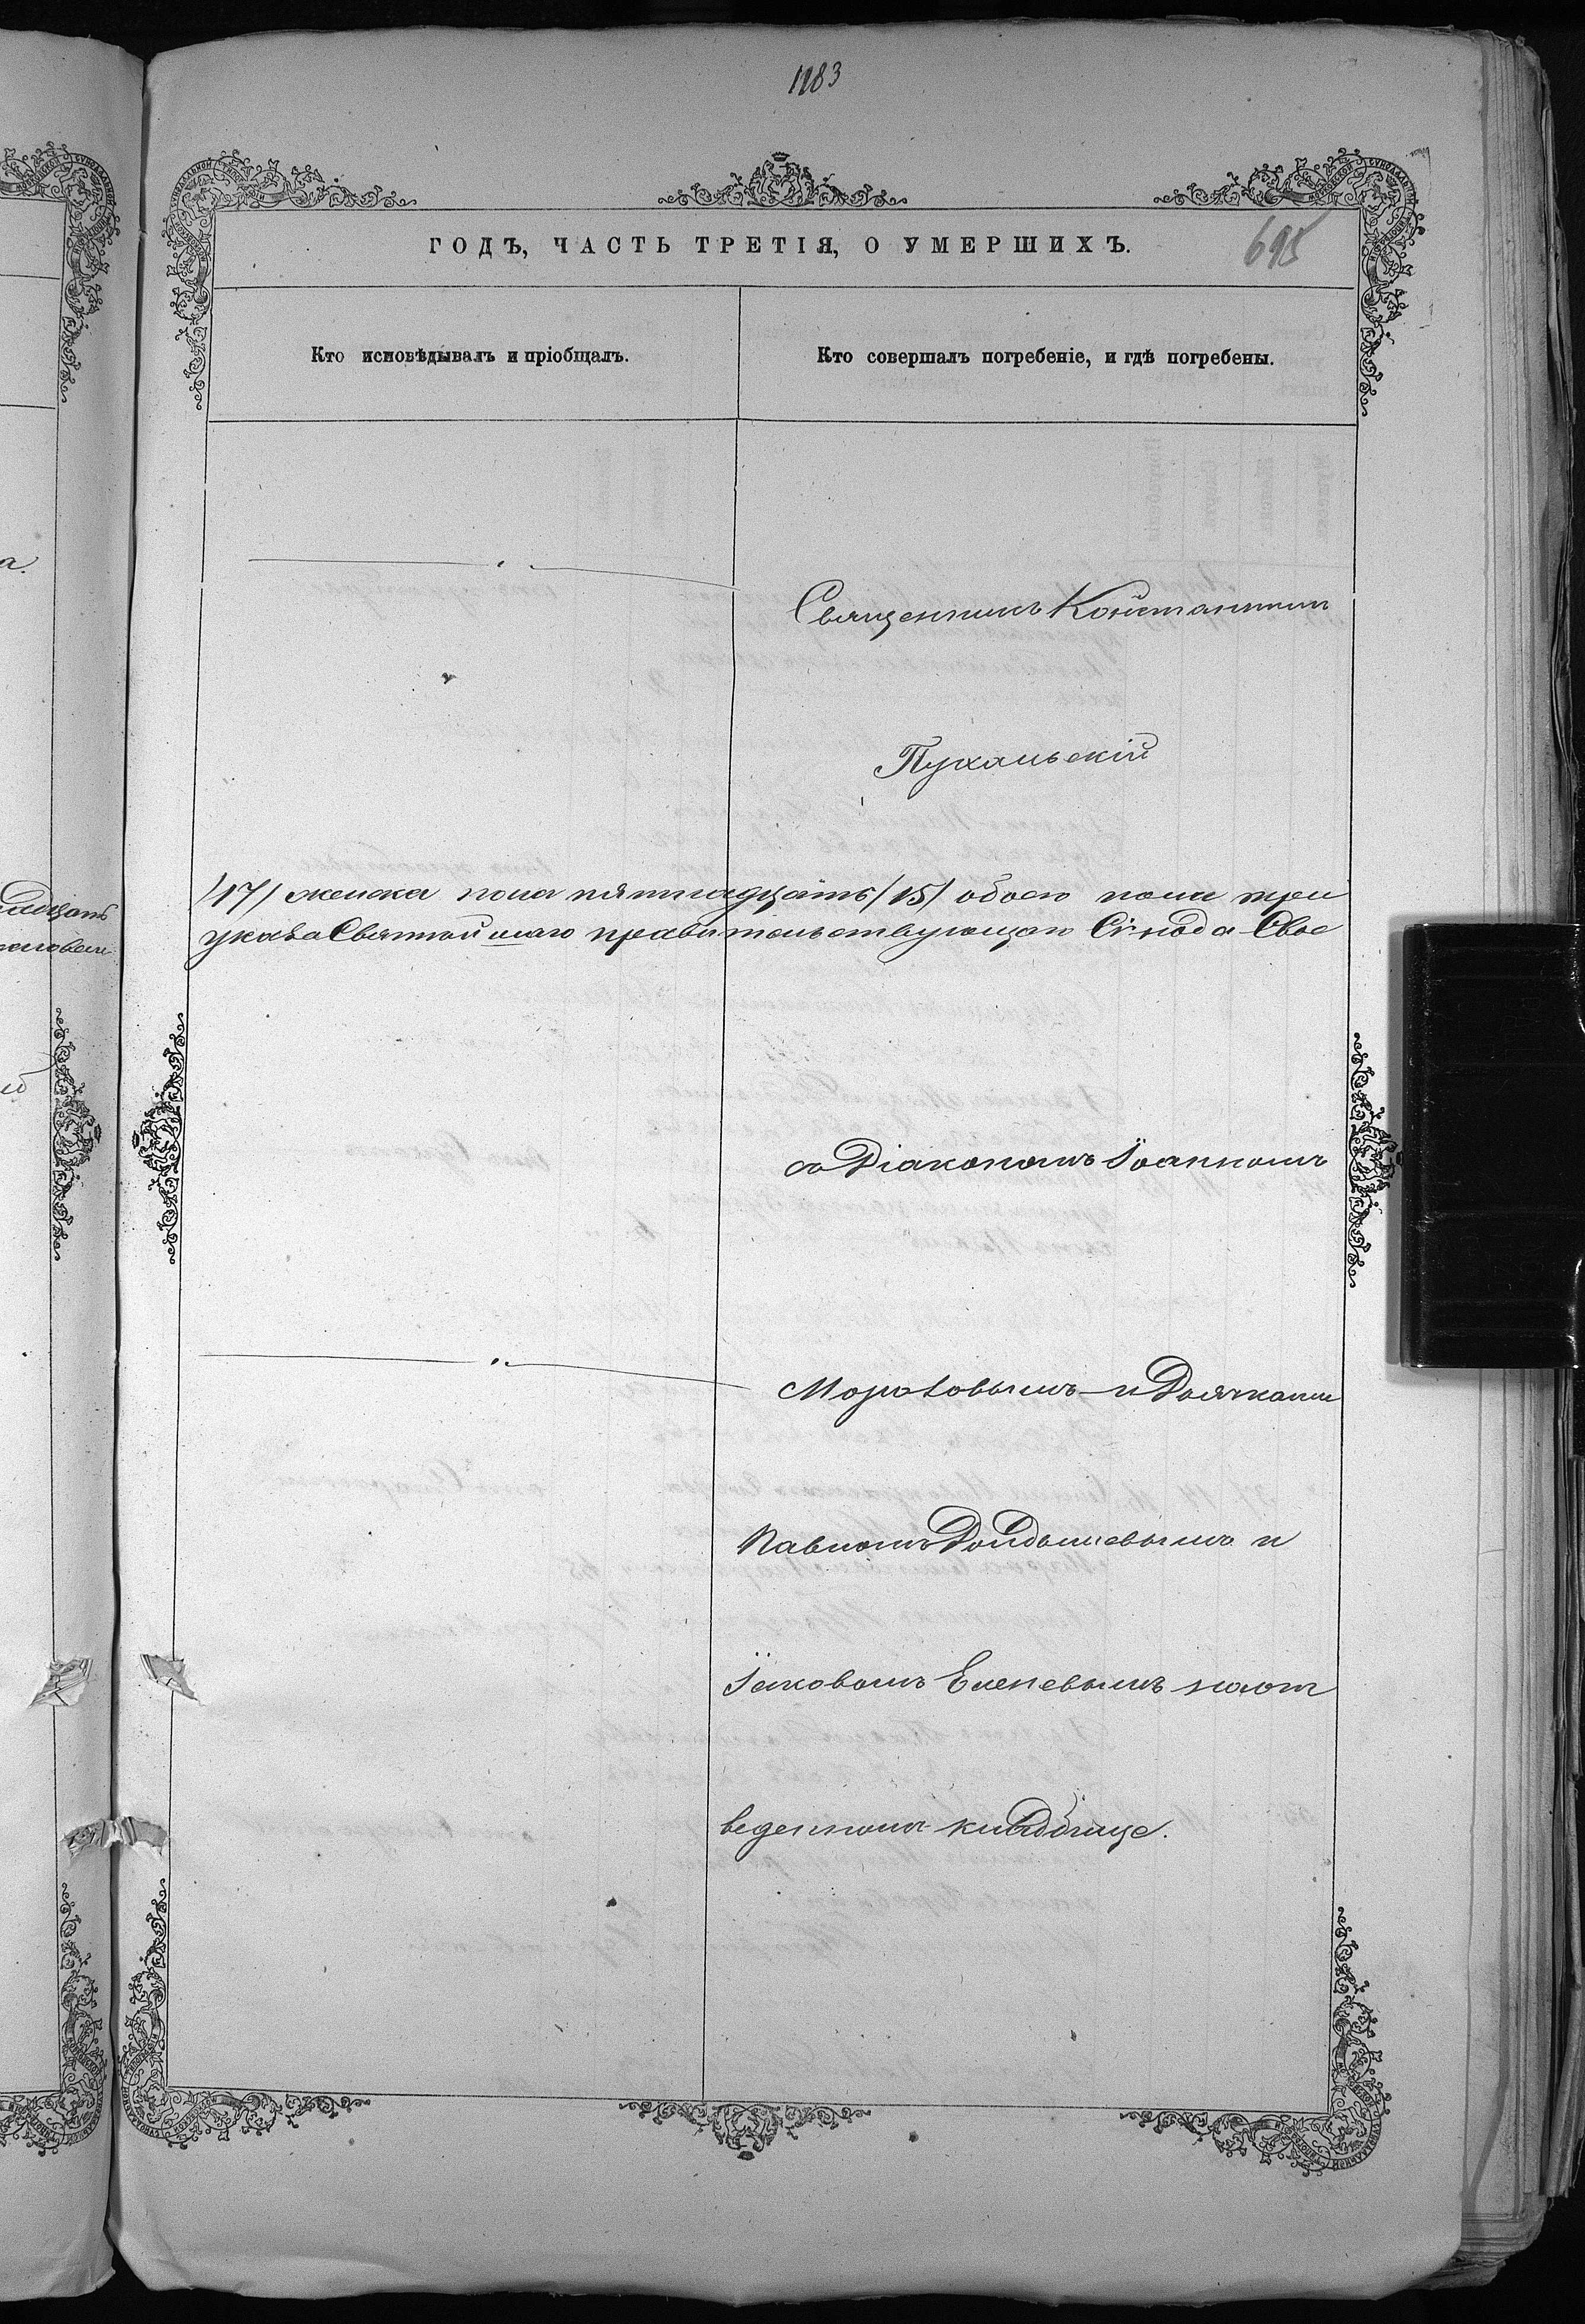 1183
ГОДЪ, ЧАСТЬ ТРЕТІЯ, О УМЕРШИХЪ.
695
Кто исповѣдывалъ и пріобщалъ.
Кто совершалъ погребеніе, и гдѣ погребены.
Священникъ Константинъ
Пухальскій
/17/ женска пола пятнадцать /15/ обоего пола три
указа Святѣйшаго правительствующаго Сѵнода Свое
съ Діакономъ Іоанномъ
Морозовымъ и Дьячками
Павломъ и
Іаковомъ Еленевымъ на от
веденномъ кладбище.